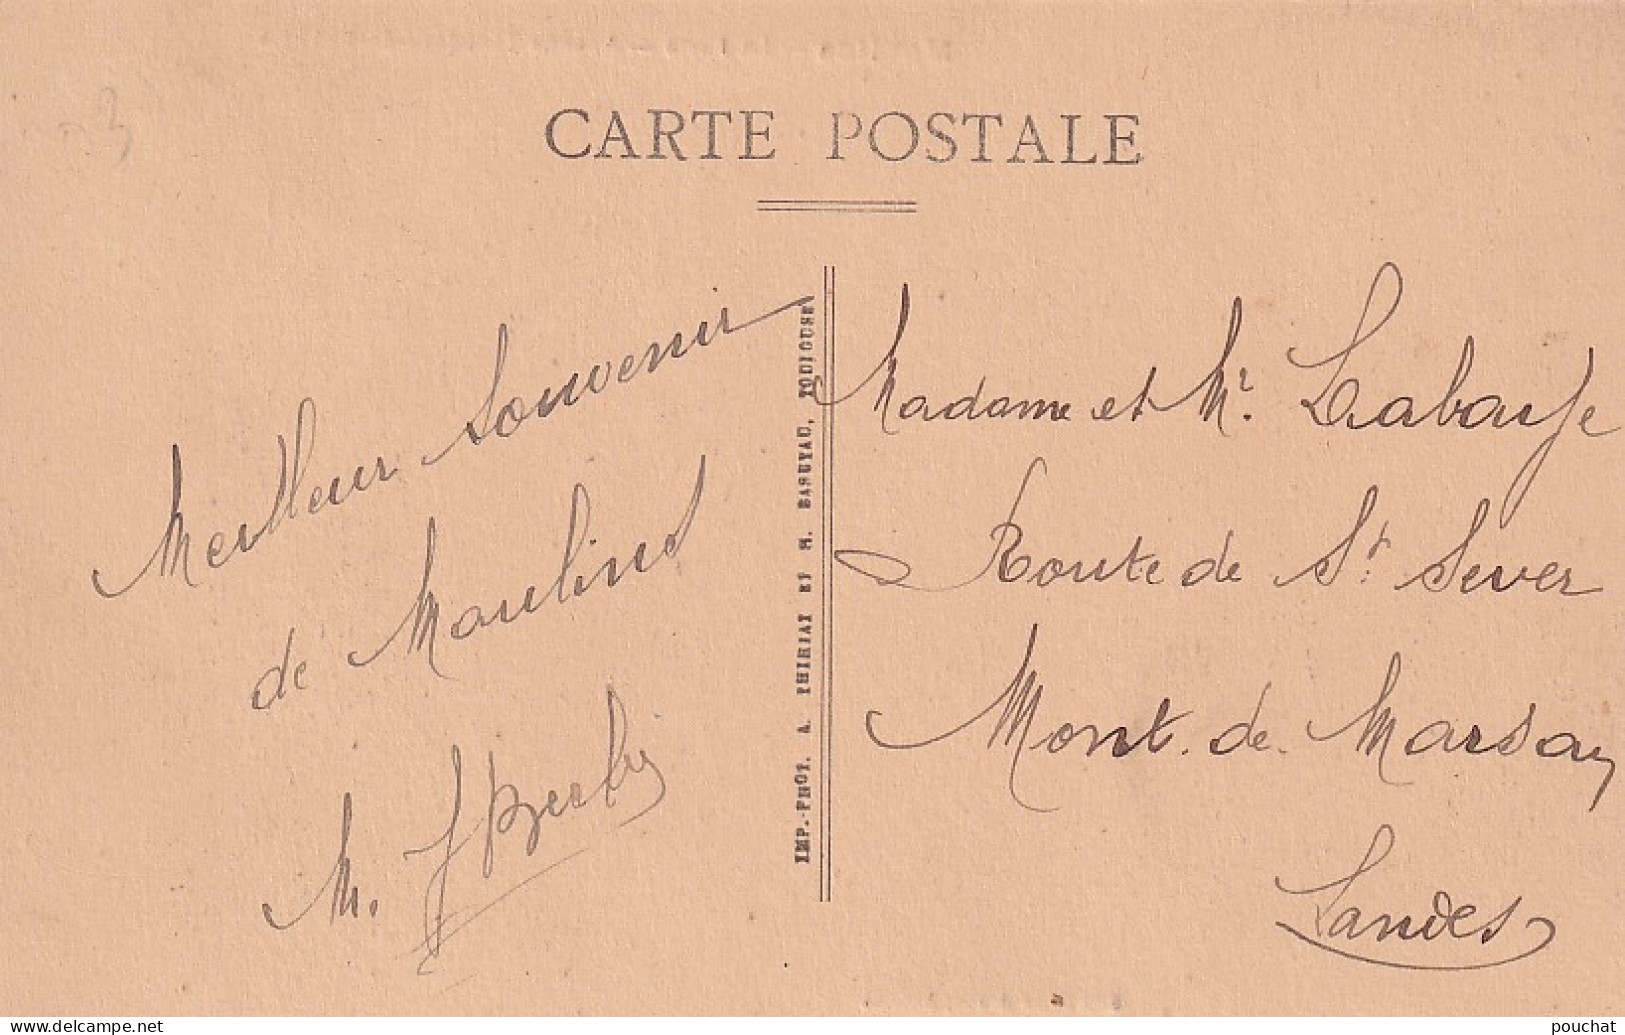 CARTE POSTALE
Meilleur Souvenir
de Moulins
M.
IMP.-PHOT. A. THIRIAT ET M. BASUYAU, TOULOUSE
Madame et Mr. Labaife
Route de St. Sever
Mont. de. Marsan
Landes
www.delcampe.net
pouchat